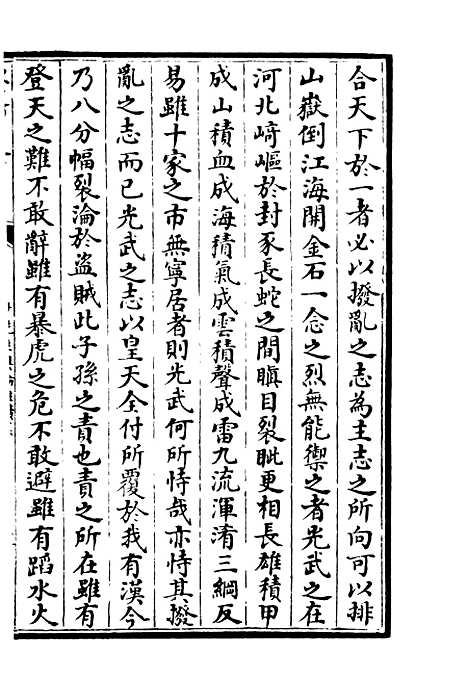 合天下於一者必以撥亂之志為主志之所向可以排
山嶽倒江海開金石一念之烈無能禦之者光武之在
河北﨑嶇於封豕長蛇之間瞋目裂眦更相長雄積甲
成山積血成海積氣成雲積聲成雷九流渾淆三綱反
易雖十家之市無寧居者則光武何所恃哉亦恃其撥
亂之志而已光武之志以皇天全付所覆於我有漢今
乃八分幅裂淪於盗賊此子孫之責也責之所在雖有
登天之難不敢辭雖有暴虎之危不敢避雖有蹈水火